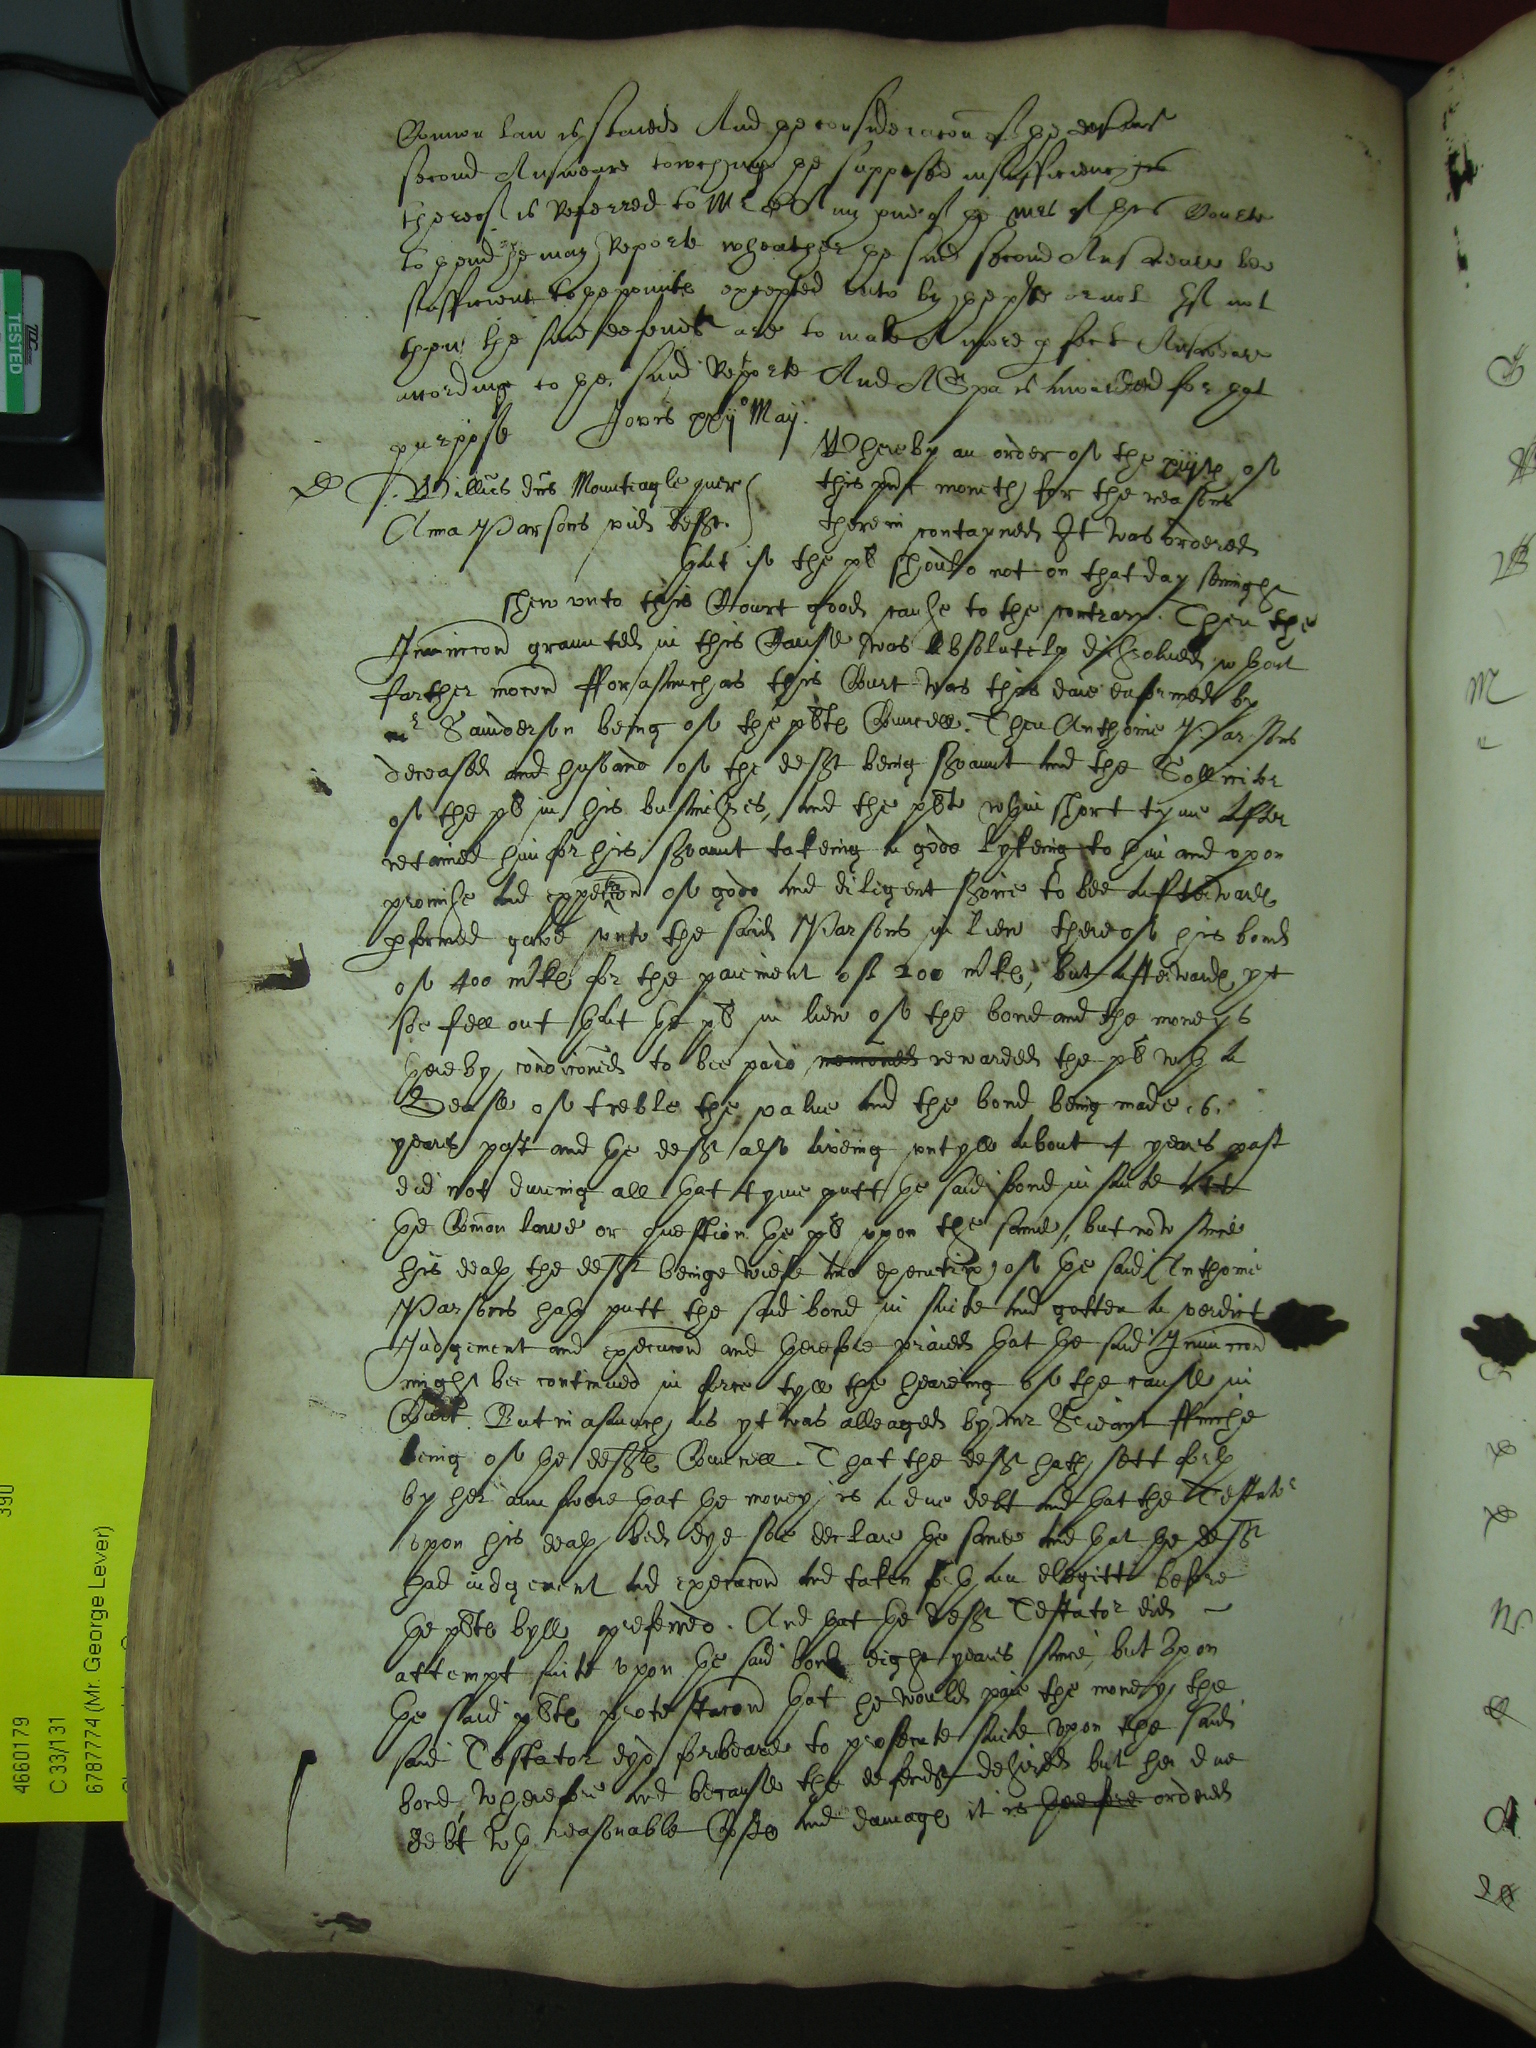 Comon law is staied And ye consideracon of ye deftes
second Answeare towchinge ye supposed insufficiencyes
thereof is Referred to Mr of ye Mrs of this Courte
to thend he may Reporte wheather ye said second Answeare bee
sufficient to ye points excepted unto by ye plte or not If not
then the said defendts are to make A more pfect Answeare
according to ye said Reporte And A Spa is awarded for yt
purpose Jovis xxij° Maij
Willus dns Mounteagle quer
Anna Parsons vid defte.
Whereby an order of the xiijth of
this pnte moneth for the reasons
therein contayned It was ordered
that if the pl should not on that day senight
shew vnto this Court good cause to the contrary. Then the
Iniunccon graunted in this Cause was absolutely dissolued wthout
further mocon fforasmuch as this Court was this daie enformed by
mr Saunderson being of the pltes Councell. Then Anthonie Parsons
deceased and husband of the deft being servaunt and the Sollicitor
of the pl in his businesses, and the plt wthin short tyme after
retained him for his servaunt takeing a good lykeing to him and vpon
promise and expectacon of good and diligent service to bee afterwards
pformed gaue vnto the said Parsons in liew thereof his bond
of 400 mkes for the paiment of 200 mkes, but afterwards yt
soe fell out that the pl in liew of the bond and the moneys
thereby condiconed to bee paid rewarded the pl wth a
Lease of treble the value and the bond being made .6.
years past and the deft also liveing vntyll about 4 years past
did not during all that tyme putt the said bond in suite att
the Comon lawe or question the pl vpon the same, but now since
his death the deft beinge wiefe and executrix of the said Anthonie
Parsons hath putt the said bond in suite and gotten a verdict
Judgement and execucon and therefore praied that the said Iniunccon
might bee continued in force tyll the heareing of the cause in
Court. But in asmuch as yt was alleaged by mr Serieant ffinche
being of the deftes Councell. That the deft hath sett forth
by her aunswere that the money is a due debt and that the Testator
vpon his death bed dyd soe declare the same and that the deft
had iudgement and execucon and taken forth an elegitt before
the pltes byll preferred. And that the deft Testator did
attempt suite vpon the said bond eight years since, but vpon
the said pltes protestacon that he would paie the money, the
said Testator dyd forbeare to prosecute suite vpon the said
bond, Wherefore and because the defendt desired but her due
debt wth reasonable Costs and damages it is therefore ordered
TESTED
390
4660179
C 33/131
6787774 (Mr. George Lever)